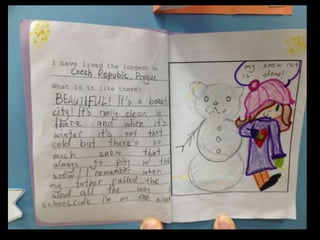 I have lived the longest in
Czech Republic, Prague
What is it like there?
BEAUTIFUL! It's a beauti
city! It's really clean in
there and when it's
winter it's not that
cold but there's so
much snow that
always go play w the
snow! I remember when
my father pulled the
sled all the way
school. I'm on the sled
my snow not
done!